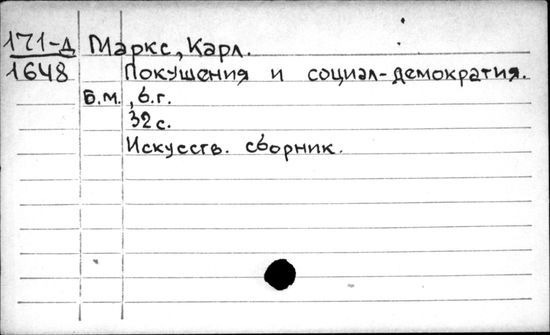 171-д Маркс, Карл.
1648 Покушения и социал-демократия.
Б.м., б.г.
32 с.
Искусств. сборник.